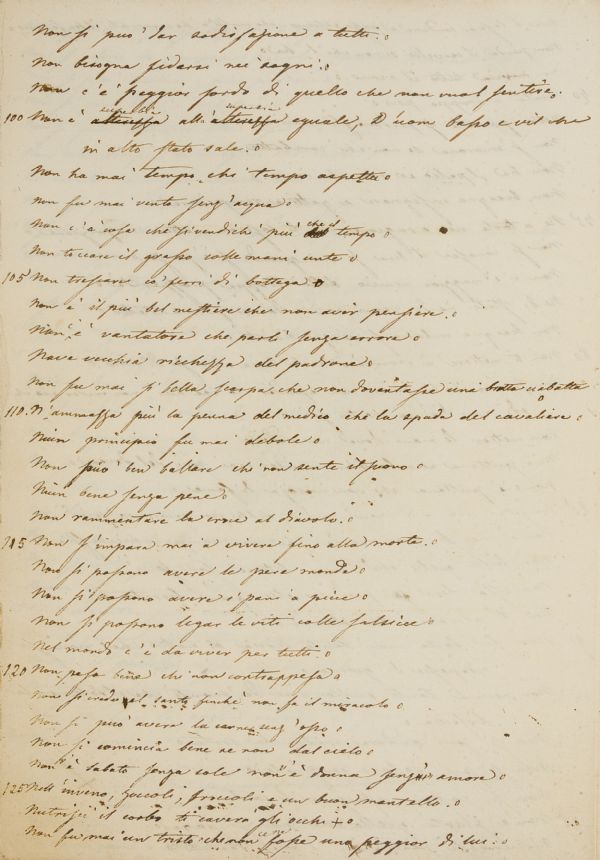 Non si può dar sodisfazione a tutti.
Non bisogna fidarsi nei sogni.
Non c'è peggior sordo di quello che non vuol sentire.
superbia superbia
100 Non è alterezza all'alterezza eguale, D'uom basso e vil che
in alto stato sale.
Non ha mai tempo chi tempo aspetta
Non fu mai vento senz'acqua
Non c'è cosa che si vendichi più che il tempo
Non toccare il grasso colle mani unte
105 Non trescare co' ferri di bottega
Non è il più bel mestiere che non aver pensiere.
Niun è vantatore che parli senza errore
Nave vecchia ricchezza del padrone
Non fu mai sì bella scarpa che non doventasse una brutta ciabatta
110. N'ammazza più la penna del medico che la spada del cavaliere
Niun principio fu mai debole
Non può ben ballare chi non sente il suono
Niun bene senza pene
Non rammentare la croce al diavolo.
115 Non s'impara mai a vivere fino alla morte.
Non si possono avere le pere monde
Non si possono avere i pani a picce
Non si possono legar le viti colle salsicce
Nel mondo c'è da viver per tutti
120 Non pesa bene chi non contrappesa
Non si crede al santo finchè non fa il miracolo
Non si può avere la carne senz'osso
Non si comincia bene se non dal cielo
Non è sabato senza sole non è donna senza amore
125 Nell'inverno, zoccoli, broccoli e un buon mantello.
Nutrisci il corbo ti caverà gli occhi +
Non fu mai un tristo che non ce ne fosse uno peggior di lui.